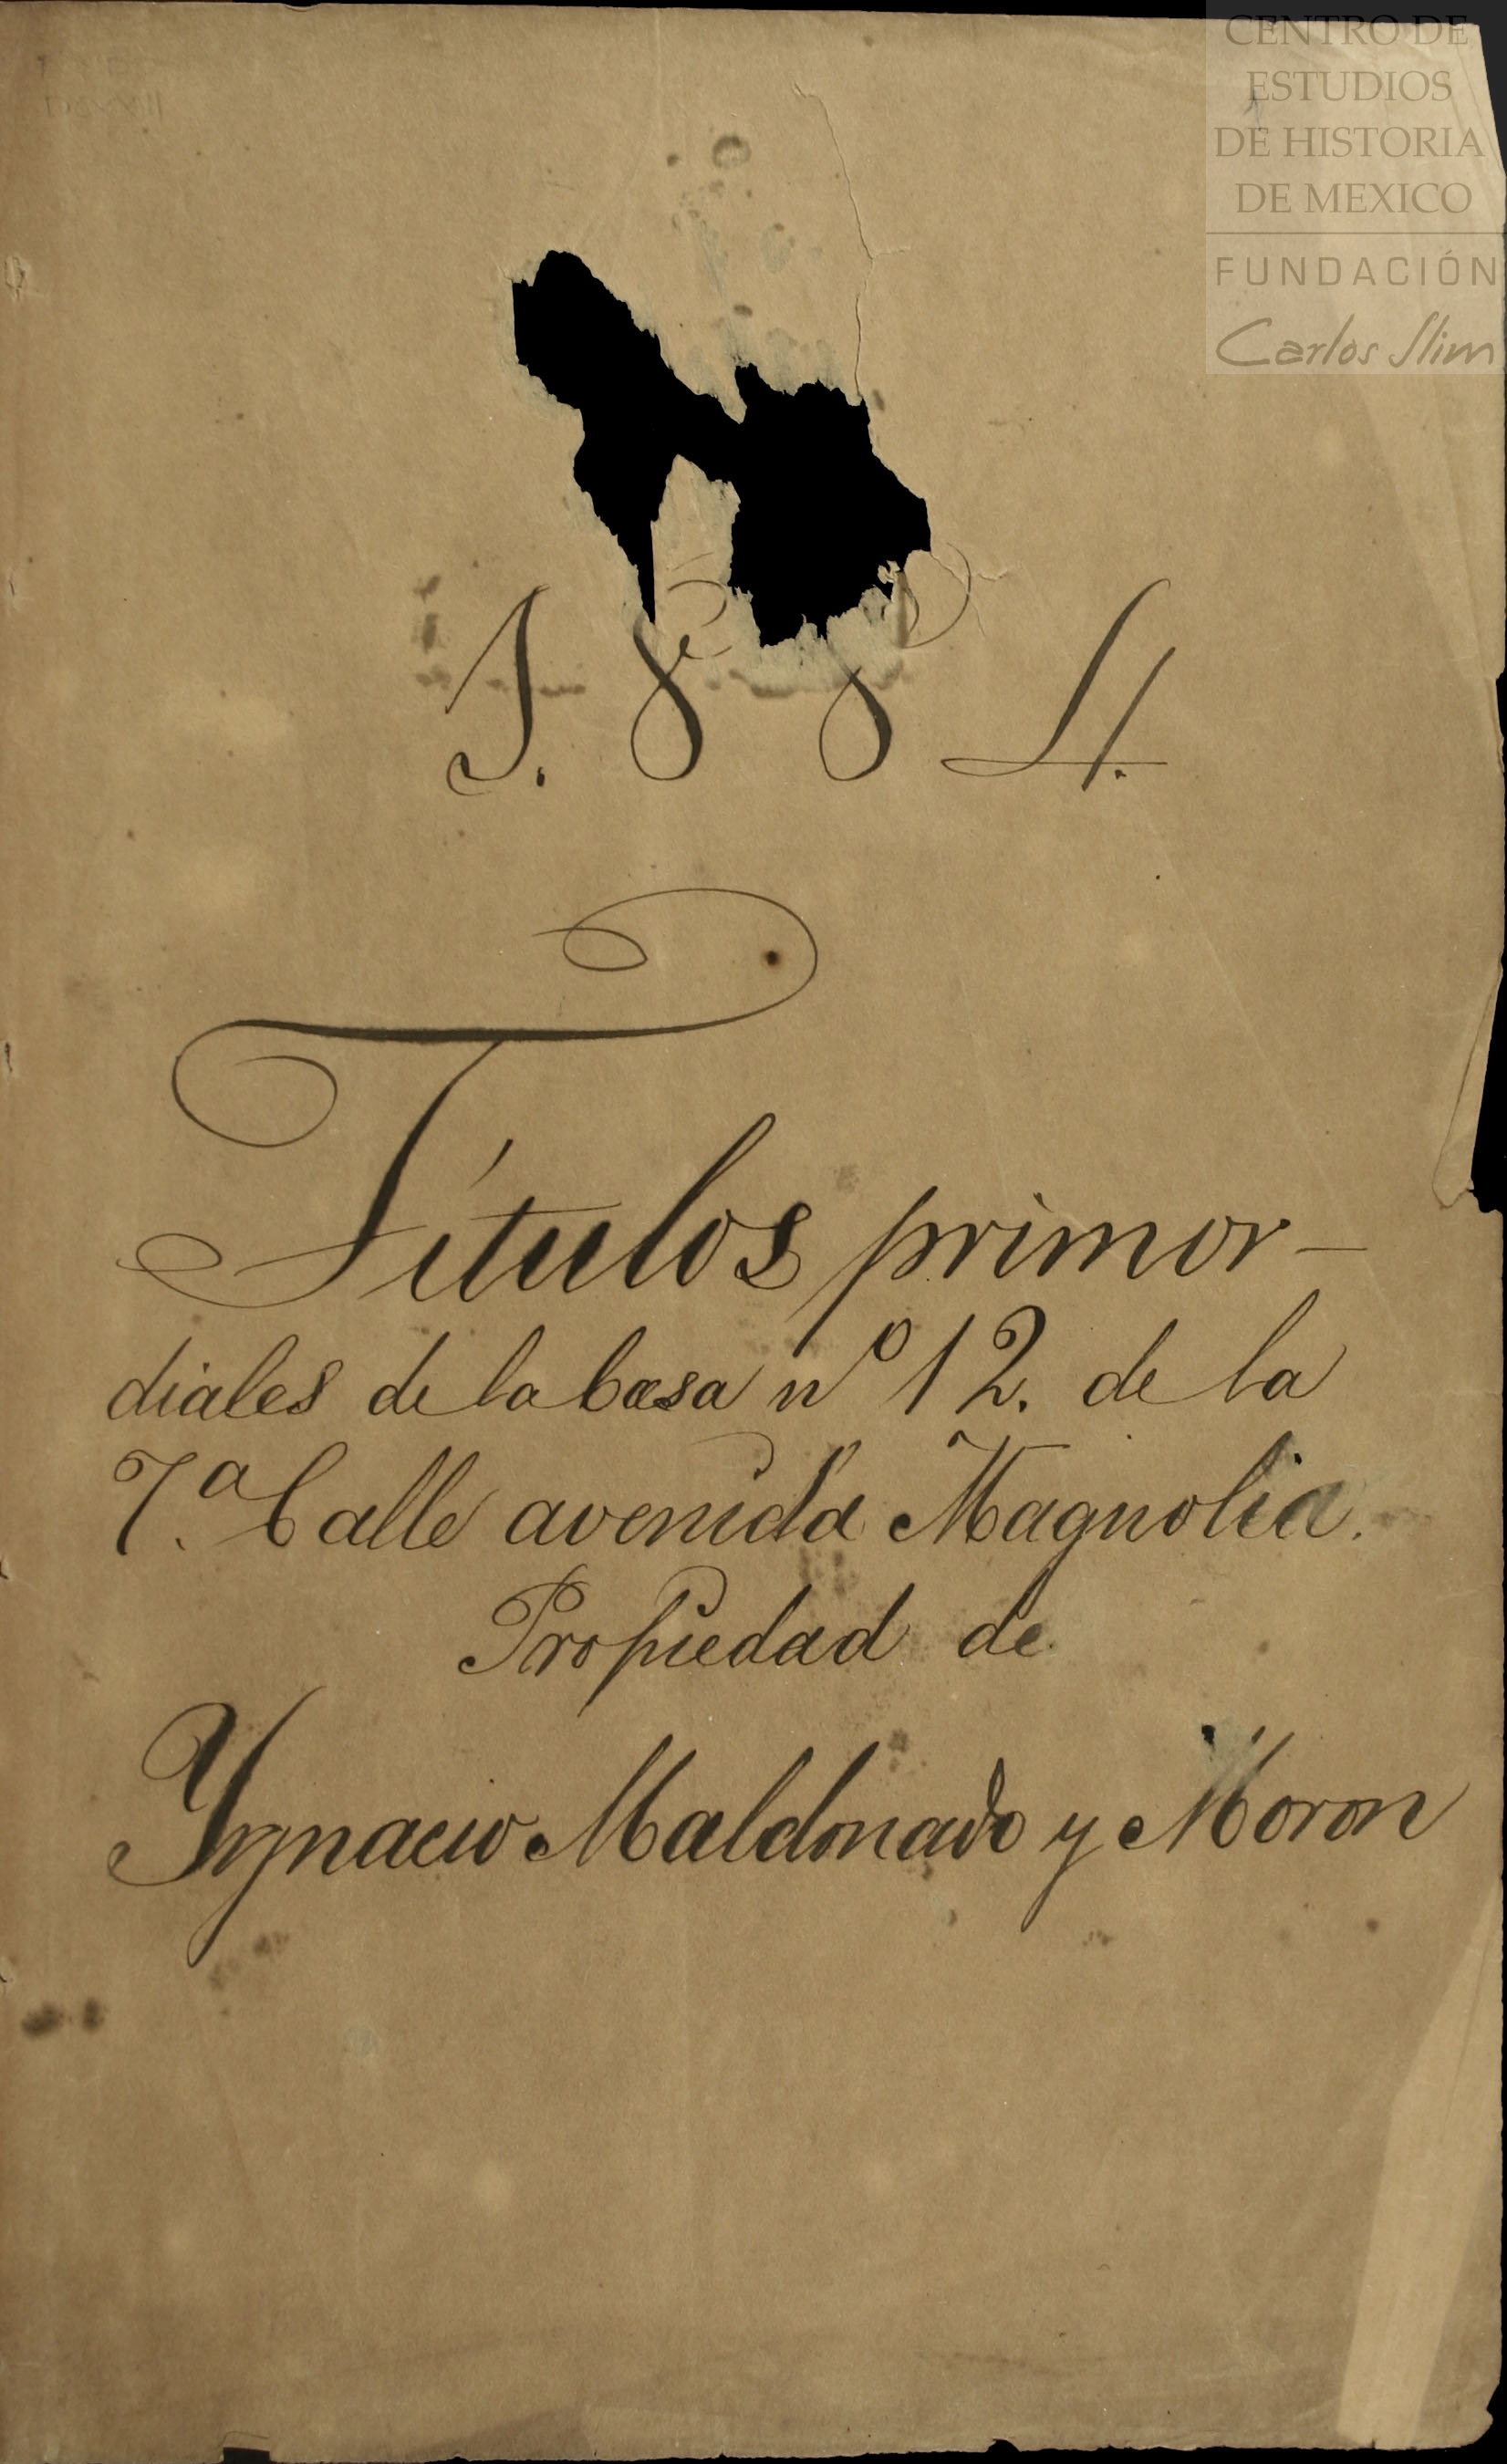 CENTRO DE
ESTUDIOS
DE HISTORIA
DE MEXICO
FUNDACIÓN
Carlos Slim
1.884.
Títulos primor-
diales de la Casa nº 12. de la
7.ª Calle avenida Magnolia.
Propiedad de
Ygnacio Maldonado y Moron